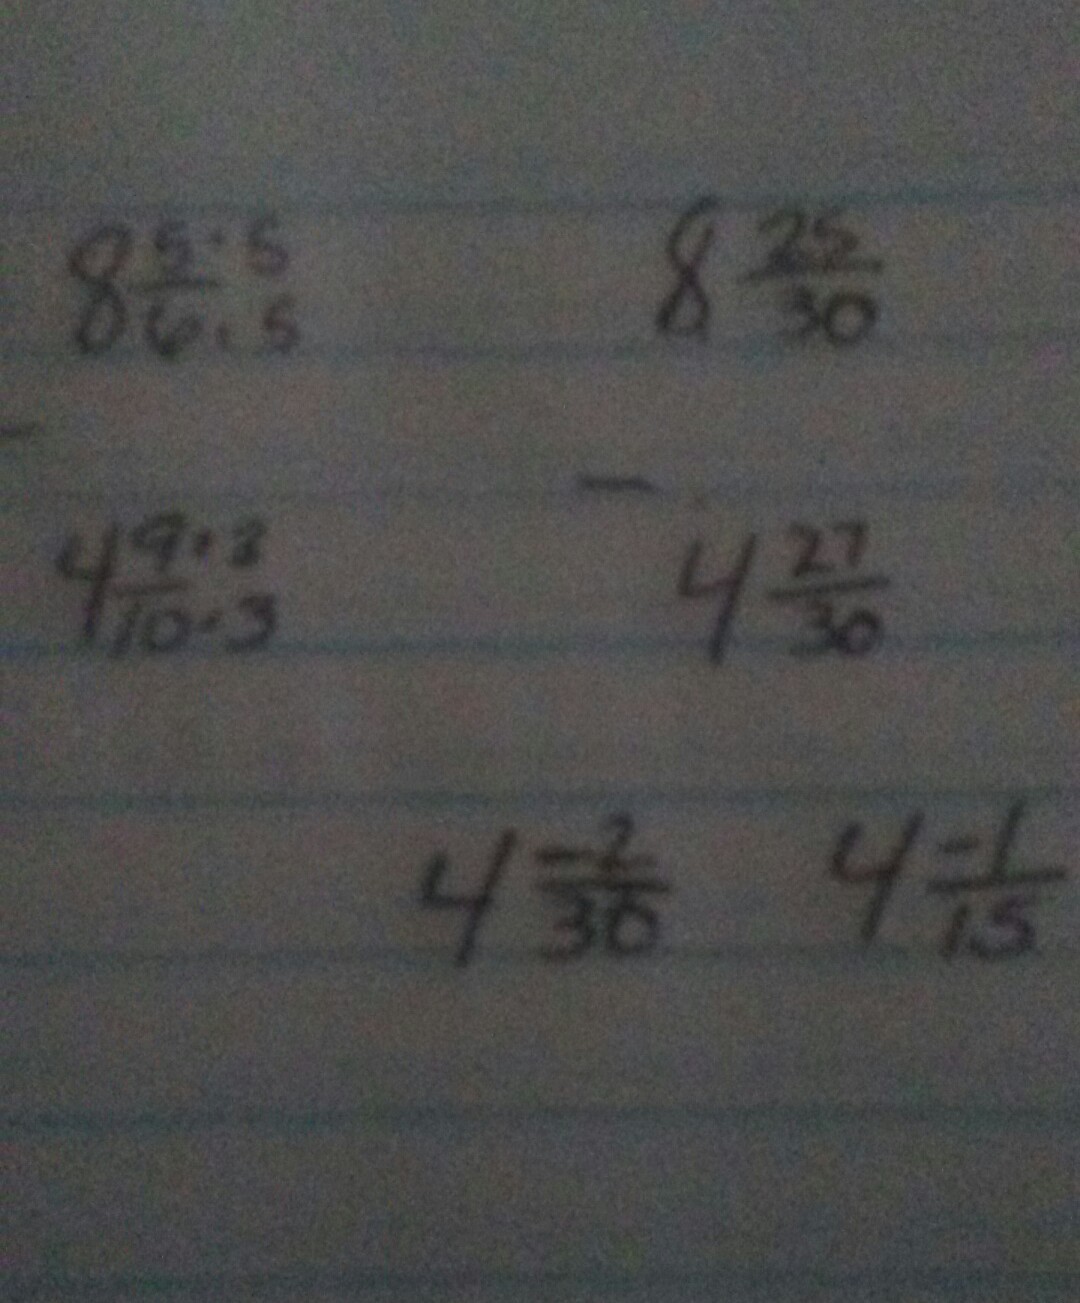 8 5·5/6·5 8 25/30
- -
4 9·3/10·3 4 27/30
4 -2/30 4 -1/15